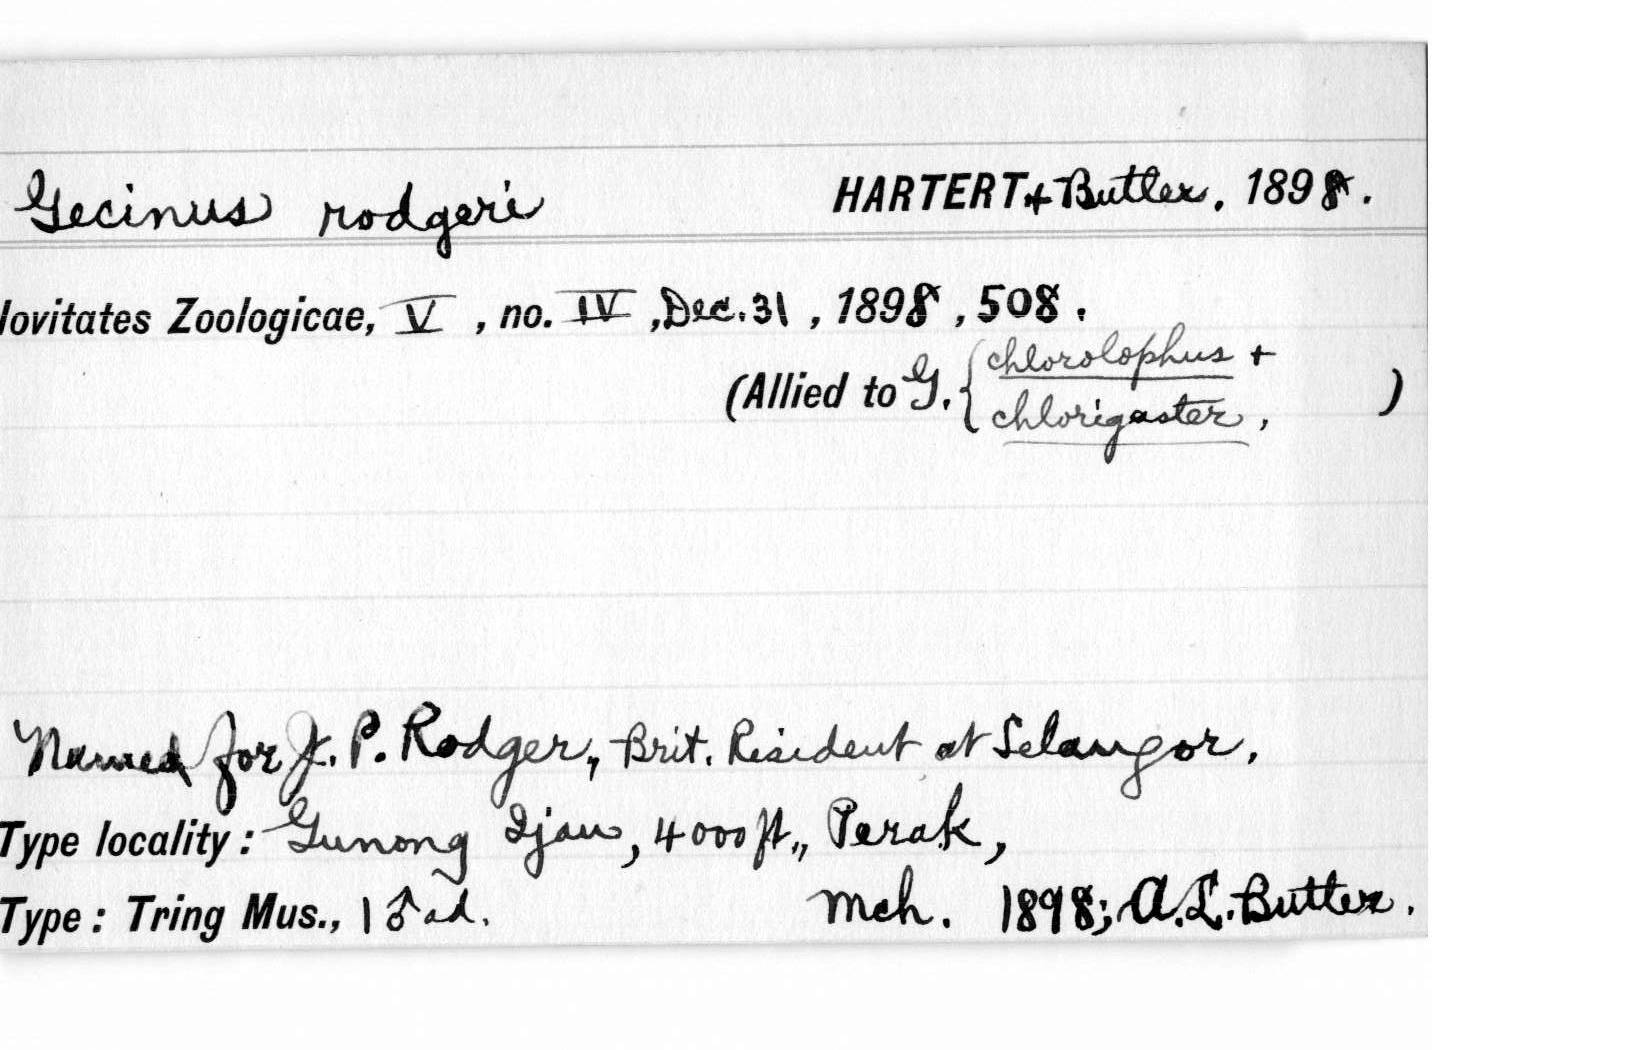 Gecinus rodgeri HARTERT + Butler, 1898.
Novitates Zoologicae, V, no. IV, Dec. 31, 1898, 508.
(Allied to G. { chlorolophus +
chlorigaster, )
Named for J. P. Rodger, Brit. Resident at Selangor,
Type locality: Gunong Ijau, 4000 ft., Perak,
Type: Tring Mus., 1 ♂ ad. Mch. 1898; A. L. Butler.